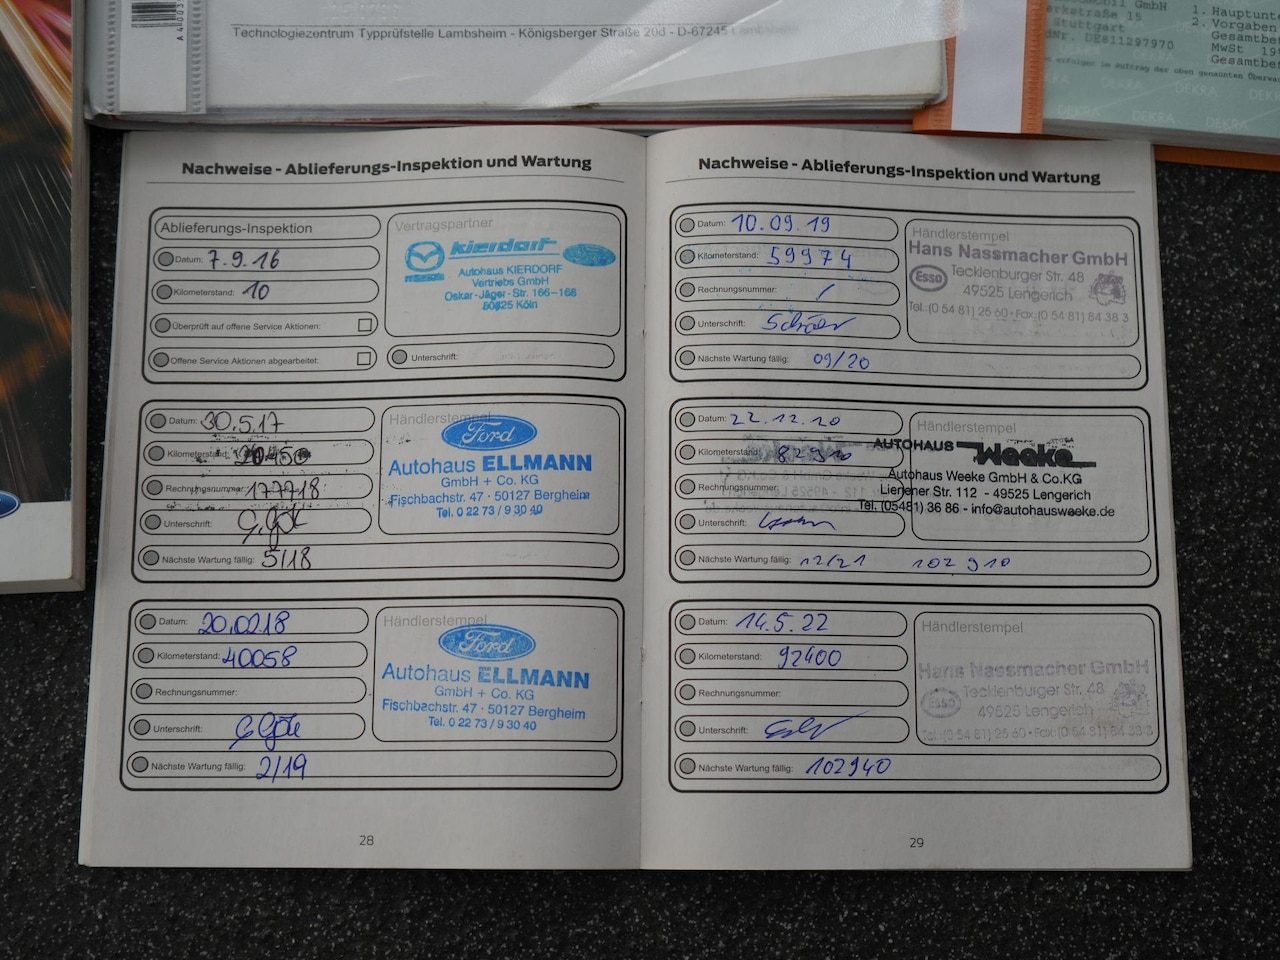 Technologiezentrum Typprüfstelle Lambsheim - Königsberger Straße 20d - D-67245
obil GmbH
erkstraße 15
Stuttgart
dNr. DE811297970
1. Hauptunte
2. Vorgaben
Gesamtbe
MwSt 19
Gesamtbe
en erfolgen im Auftrag der oben genannten
DEKRA DEKRA DEKRA
DEKRA DEKRA
Nachweise - Ablieferungs-Inspektion und Wartung
Ablieferungs-Inspektion
Datum: 7.9.16
Kilometerstand: 10
Überprüft auf offene Service Aktionen:
Offene Service Aktionen abgearbeitet:
Vertragspartner
mazda
Kierdorf
Autohaus KIERDORF
Vertriebs GmbH
Oskar-Jäger-Str. 166-168
50825 Köln
Unterschrift:
Datum: 30.5.17
Kilometerstand:
Rechnungsnummer: 177718
Unterschrift:
Nächste Wartung fällig: 5/18
Händlerstempel
Ford
Autohaus ELLMANN
GmbH + Co. KG
Fischbachstr. 47 · 50127 Bergheim
Tel. 0 22 73 / 9 30 40
Datum: 20.02.18
Kilometerstand: 40058
Rechnungsnummer:
Unterschrift:
Nächste Wartung fällig: 2/19
Händlerstempel
Ford
Autohaus ELLMANN
GmbH + Co. KG
Fischbachstr. 47 · 50127 Bergheim
Tel. 0 22 73 / 9 30 40
28
Nachweise - Ablieferungs-Inspektion und Wartung
Datum: 10.09.19
Kilometerstand: 59974
Rechnungsnummer: /
Unterschrift:
Nächste Wartung fällig: 09/20
Händlerstempel
Hans Nassmacher GmbH
Esso
Tecklenburger Str. 48
49525 Lengerich
Tel.: (0 54 81) 25 60 · Fax: (0 54 81) 84 38 3
Datum: 22.12.20
Kilometerstand: 82910
Rechnungsnummer:
Unterschrift:
Nächste Wartung fällig: 12/21 102 910
Händlerstempel
AUTOHAUS Weeke
Autohaus Weeke GmbH & Co.KG
Lienener Str. 112 - 49525 Lengerich
Tel. (05481) 36 86 - info@autohausweeke.de
Datum: 14.5.22
Kilometerstand: 92400
Rechnungsnummer:
Unterschrift:
Nächste Wartung fällig: 102940
Händlerstempel
Hans Nassmacher GmbH
Esso
Tecklenburger Str. 48
49525 Lengerich
Tel.: (0 54 81) 25 60 · Fax: (0 54 81) 84 38 3
29